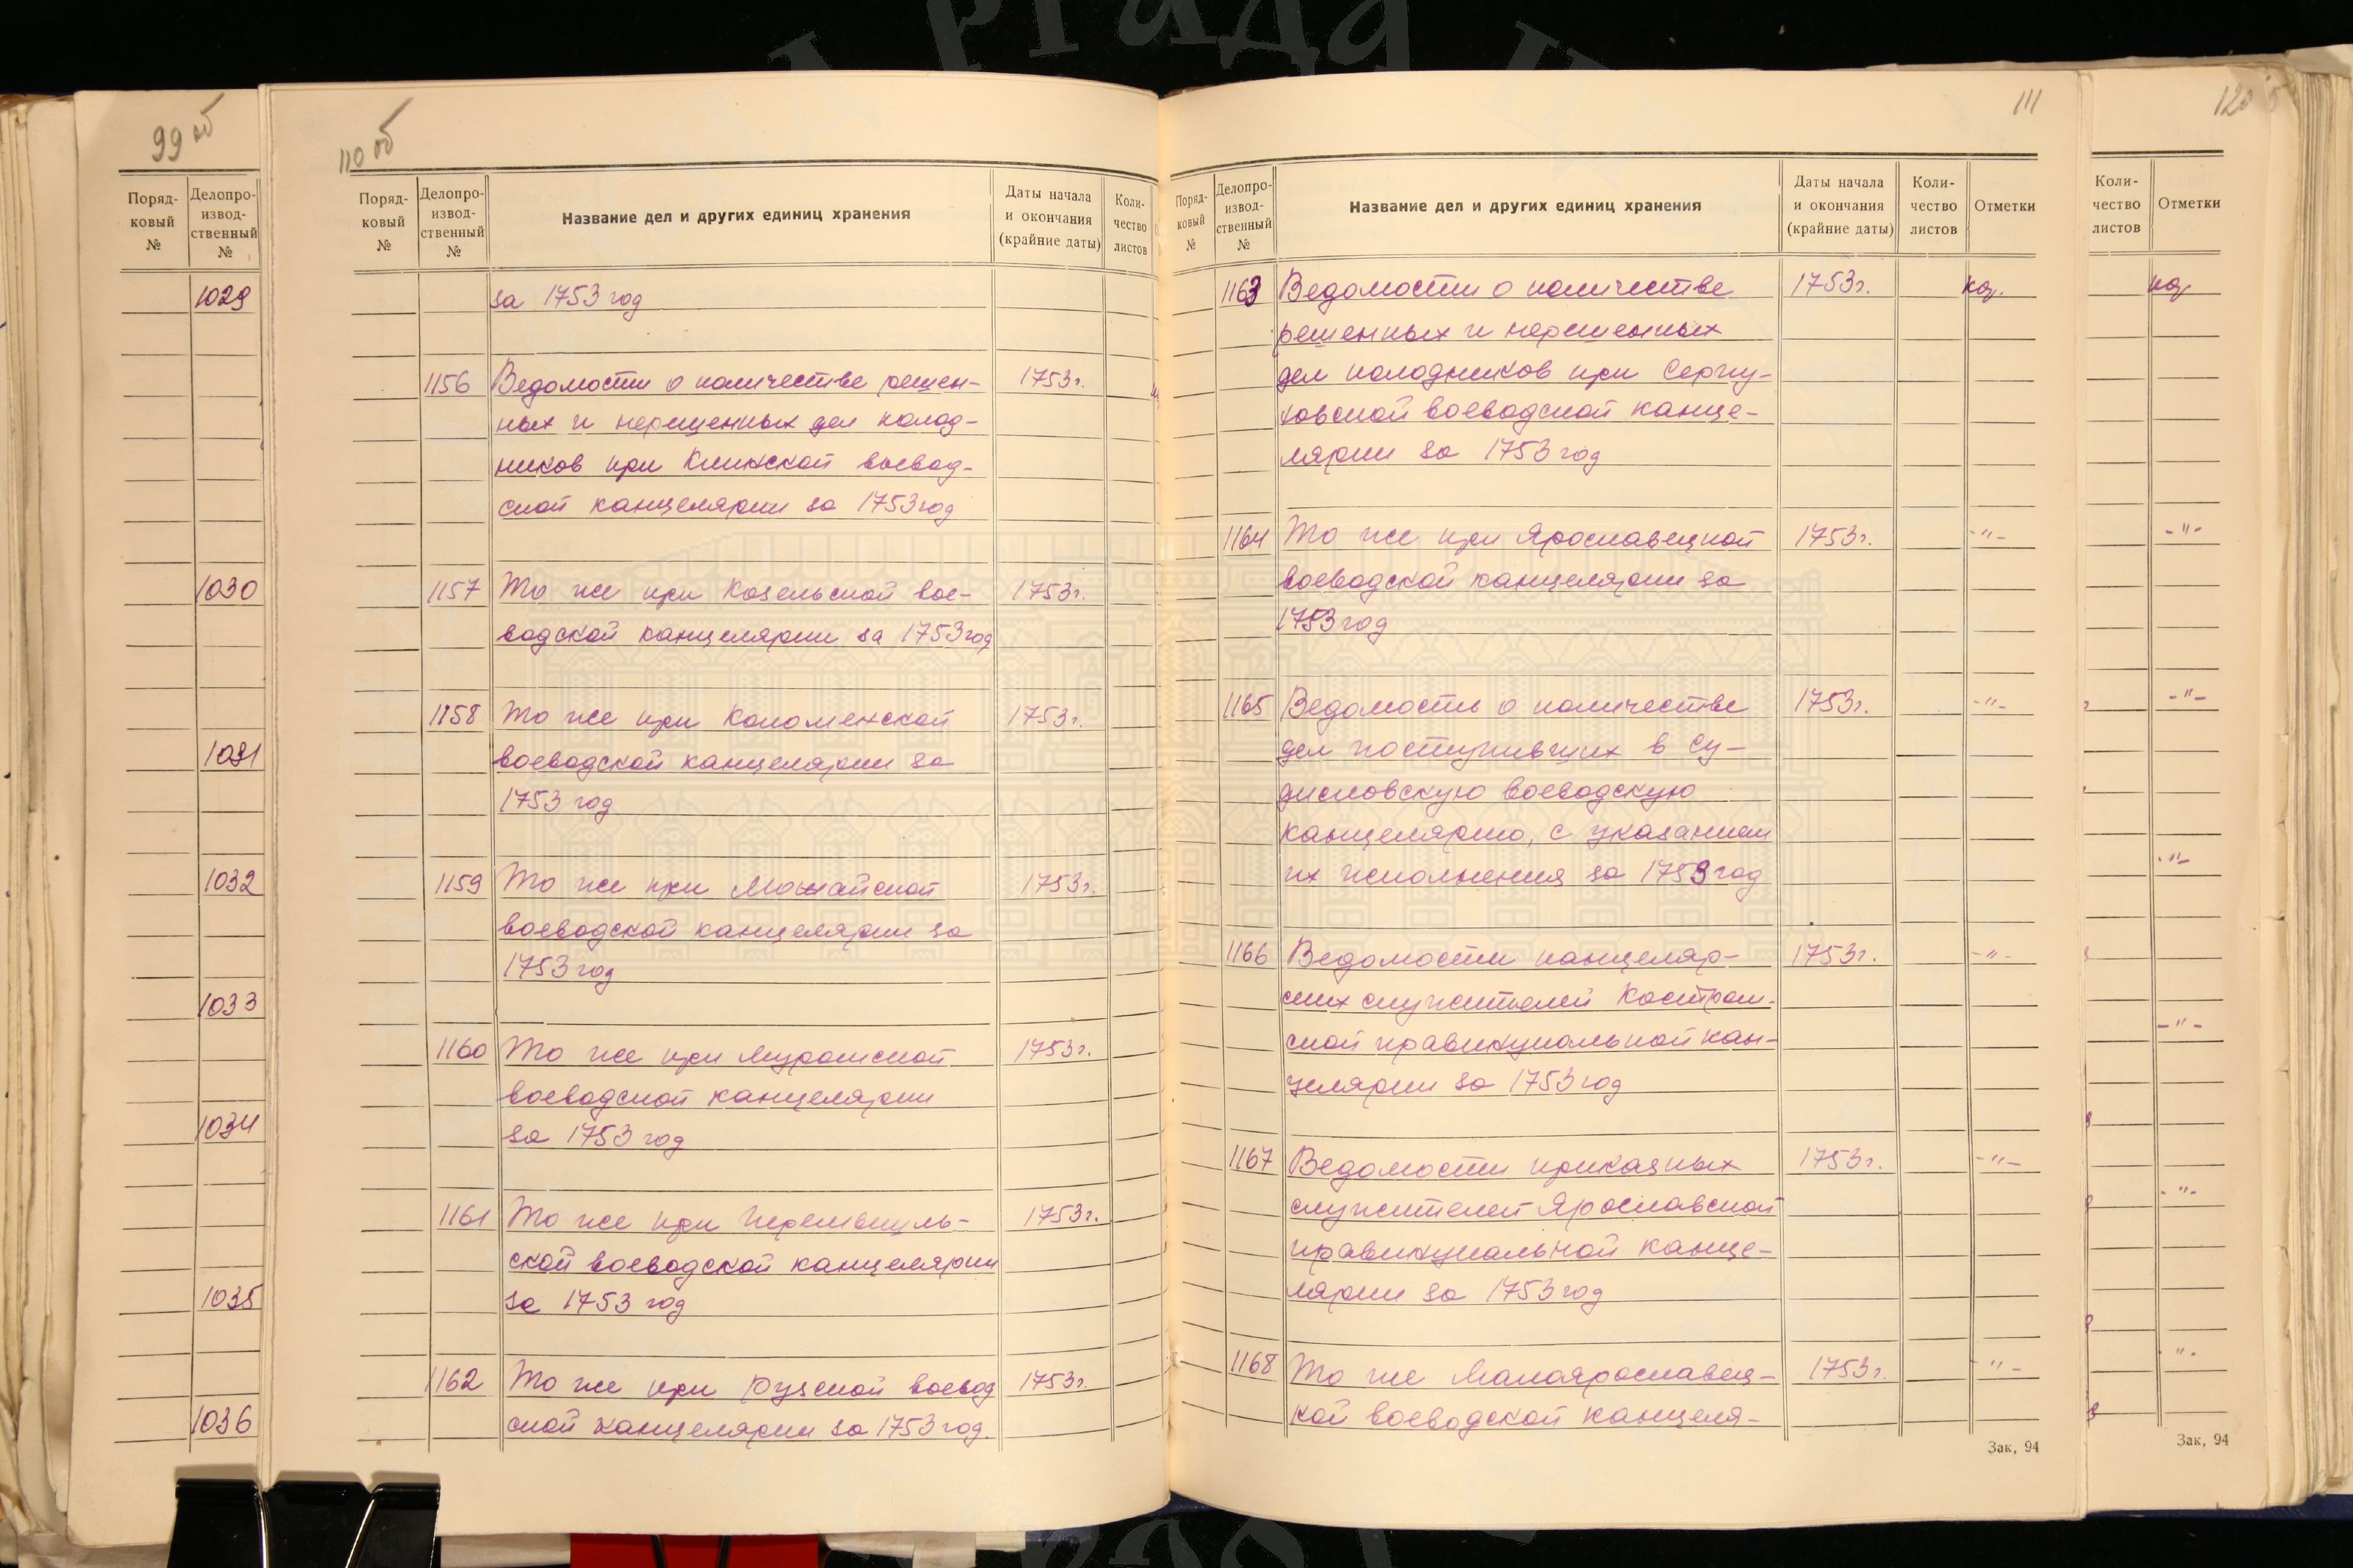 99 об
Поряд-
ковый
№
Делопро-
извод-
ственный
№
1029
1030
1031
1032
1033
1034
1035
1036
110 об
Поряд-
ковый
№
Делопро-
извод-
ственный
№
Название дел и других единиц хранения
Даты начала
и окончания
(крайние даты)
Коли-
чество
листов
за 1753 год
1156 Ведомости о количестве решен- 1753г.
ных и нерешенных дел колод-
ников при Клинской воевод-
ской канцелярии за 1753 год
1157 То же при Козельской вое- 1753г.
водской канцелярии за 1753 год
1158 То же при Коломенской 1753г.
воеводской канцелярии за
1753 год
1159 То же при Можайской 1753г.
воеводской канцелярии за
1753 год
1160 То же при Муромской 1753г.
воеводской канцелярии
за 1753 год
1161 То же при Перемышль- 1753г.
ской воеводской канцелярии
за 1753 год
1162 То же при Рузской воевод 1753г.
ской канцелярии за 1753 год.
111
Поряд-
ковый
№
Делопро-
извод-
ственный
№
Название дел и других единиц хранения
Даты начала
и окончания
(крайние даты)
Коли-
чество
листов
Отметки
1163 Ведомости о количестве 1753г.
решенных и нерешенных
дел колодников при Серпу-
ховской воеводской канце-
лярии за 1753 год
1164 То же при Ярославецкой 1753г. -"-
воеводской канцелярии за
1753 год
1165 Ведомость о количестве 1753г. -"-
дел поступивших в Су-
дисловскую воеводскую
канцелярию, с указанием
их исполнения за 1753 год
1166 Ведомости канцеляр- 1753г. -"-
ских служителей Костром-
ской правинциальной кан-
целярии за 1753 год
1167 Ведомости приказных 1753г. -"-
служителей Ярославской
правинциальной канце-
лярии за 1753 год
1168 То же Малоярославец- 1753г. -"-
кой воеводской канцеля-
Зак, 94
Коли-
чество
листов
Отметки
-"-
-"-
-"-
-"-
-"-
-"-
Зак, 94